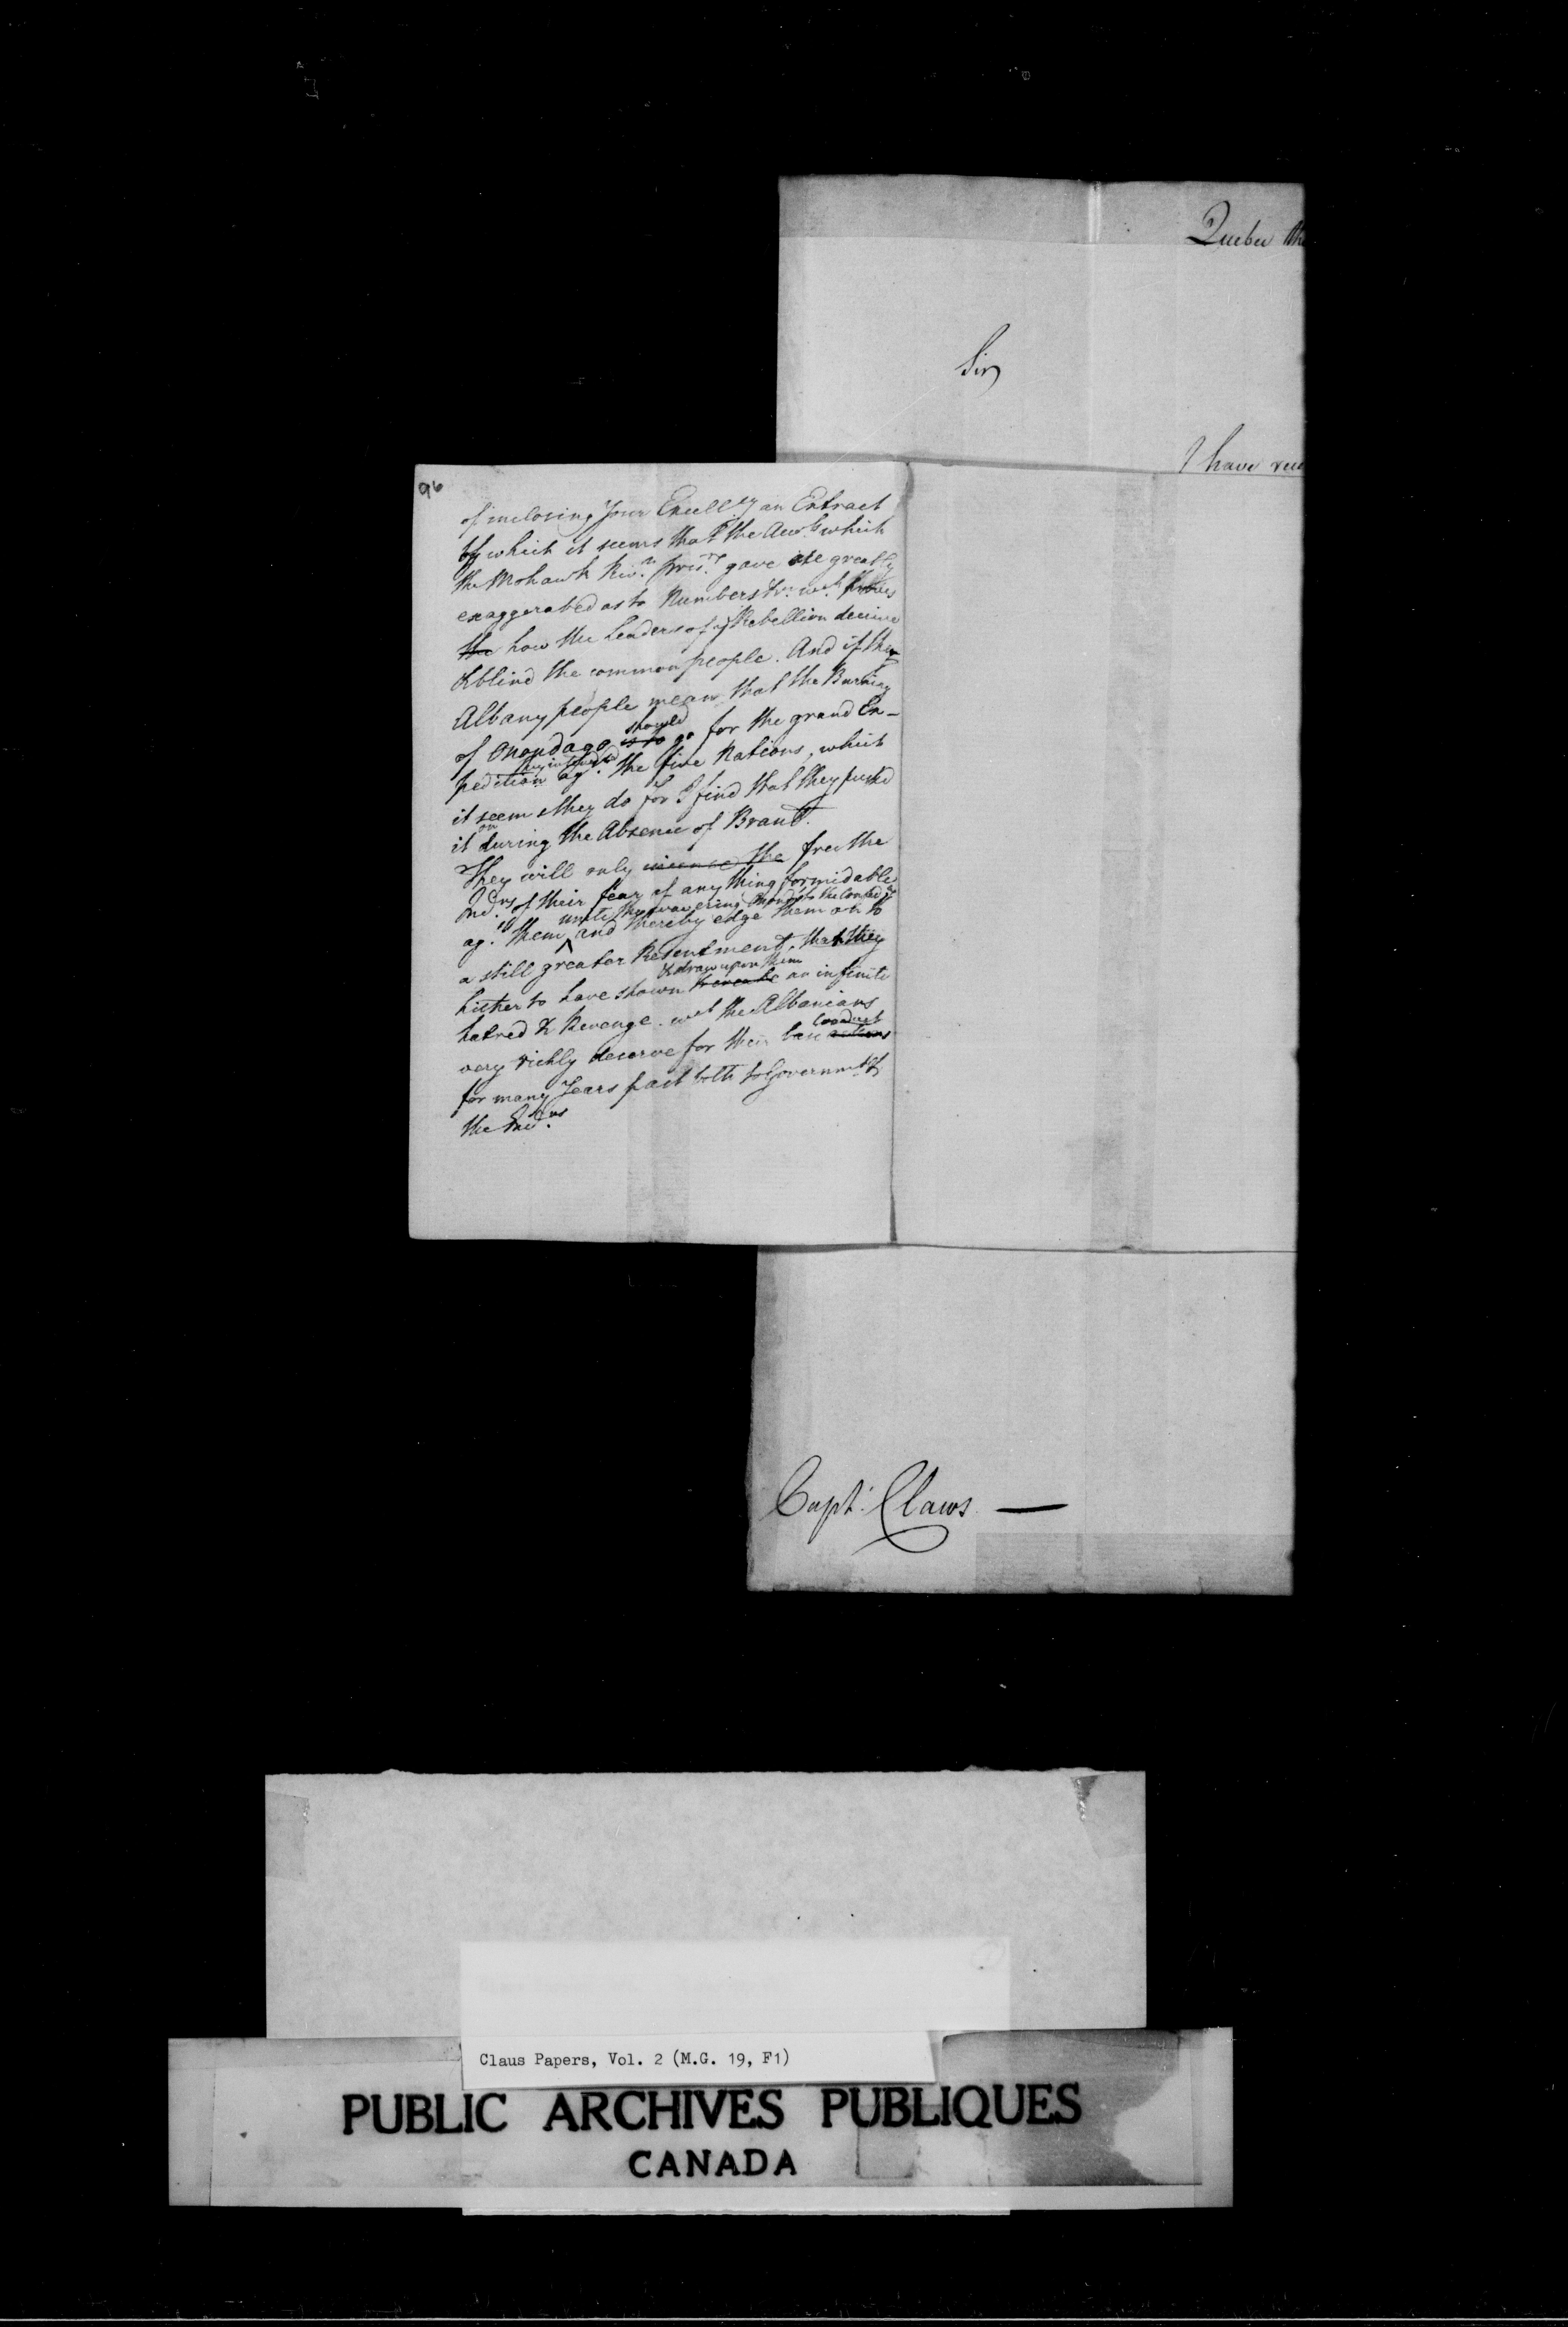 Quebec the
Sir
I have rece
96
of inclosing Your Excell.cy an Extract
by which it seems that the Acco.ts which
the Mohawk Riv.r pris.rs gave are greatly
exaggerated as to Numbers &ca. wch. proves
the how the Leaders of ye Rebellion deceive
& blind the common people. And if the
Albany people mean that the Burning
of Onondago is to should go for the grand Ex-
pedition they intended ag.t the five Nations, which
it seems they do for I find that they pushd
it on during the Absence of Brant.
They will only incense the free the
Ind.ns of their fear of any thing formidable
ag.st them unite the wavering Onond.s to the Confed.cy and thereby edge them on to
a still greater Resentment, that they
hitherto have shown & draw upon them an infinite
hatred & Revenge. wch the Albanians
very richly deserve for their base actions conduct
for many Years past both to Governm.t &
the Ind.ns
Capt. Claws
Claus Papers, Vol. 2 (M.G. 19, F1)
PUBLIC ARCHIVES PUBLIQUES
CANADA